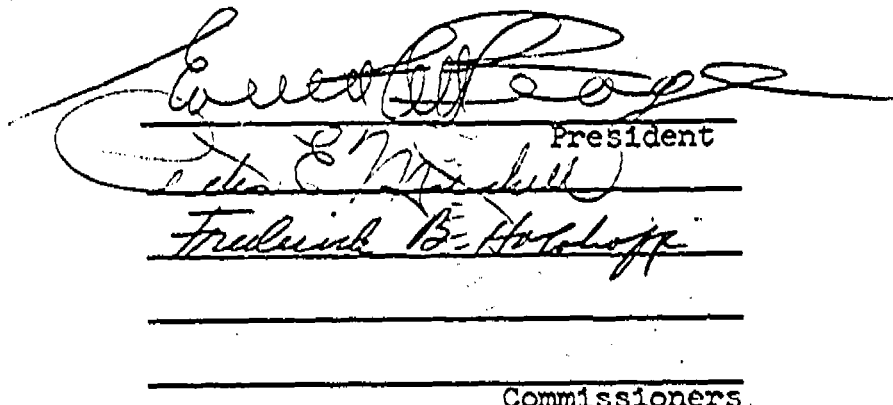 Everett
President
Peter E. Mitchell
Frederick B. Holoboff
Commissioners